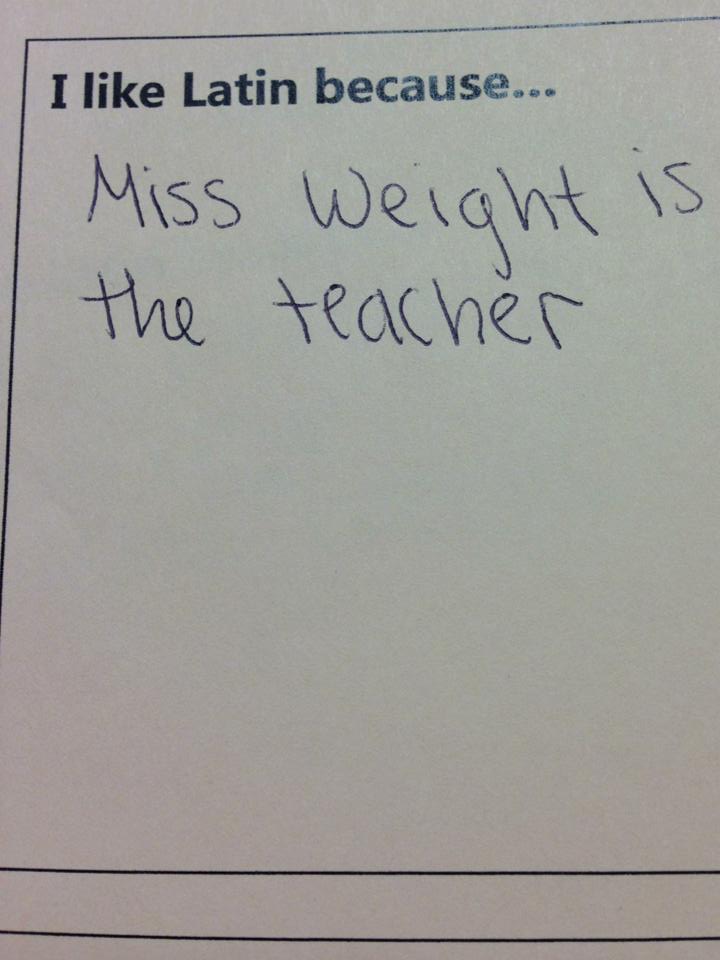 I like Latin because...
Miss Weight is
the teacher